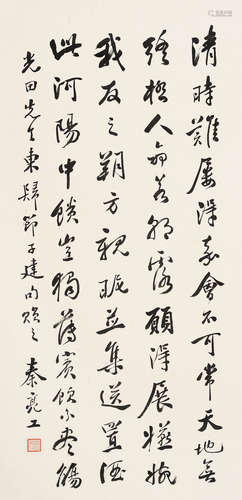 清時難屢得嘉會不可常天地無
終極人命若朝願得展嬿婉
我友之朔方親昵並集送置酒
此河陽中饋豈獨薄賓飲不盡觴
光田先生東歸節子建句贈之 秦亮工